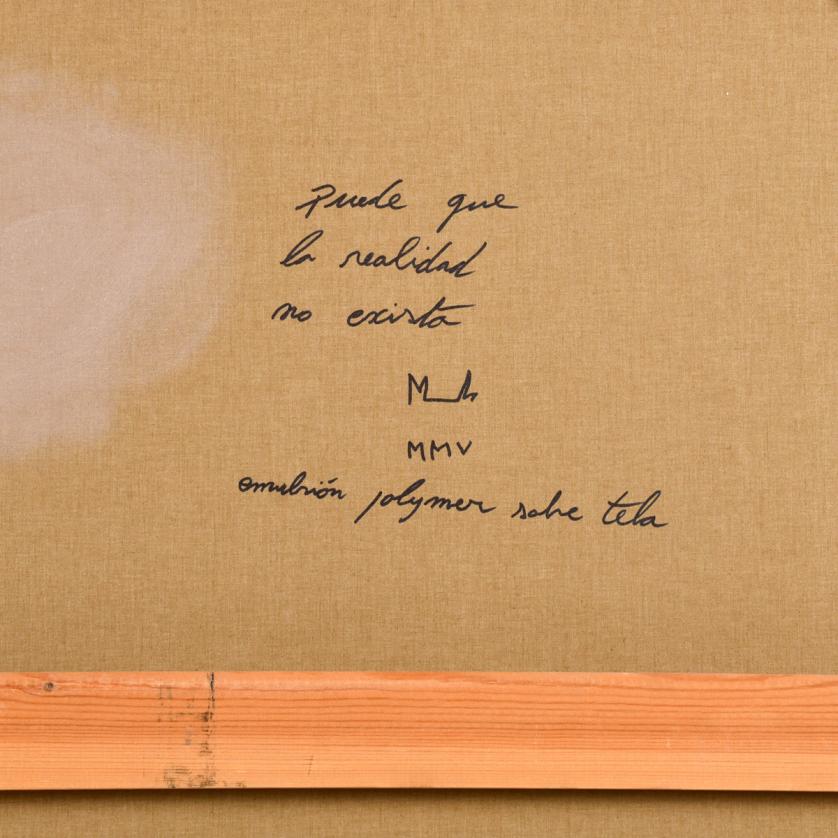 Puede que
la realidad
no exista
MMV
emulsión polymer sobre tela